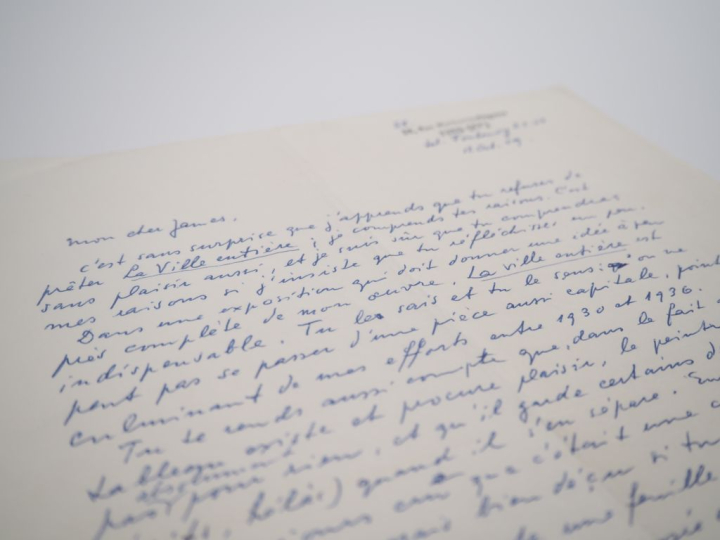 mon cher James,
c'est sans surprise que j'apprends que tu refuses de
prêter La Ville entière ; je comprends tes raisons. C'est
sans plaisir aussi, et je suis sûr que tu comprendras
mes raisons si j'insiste que tu réfléchisses un peu.
Dans une exposition qui doit donner une idée à peu
près complète de mon œuvre, La ville entière est
indispensable. Tu le sais et tu le sens : on ne
peut pas se passer d'une pièce aussi capitale, point
culminant de mes efforts entre 1930 et 1936.
Tu te rends aussi compte que, dans le fait
tableau existe et procure plaisir, le peintre
absolument
pas pour rien, et qu'il garde certains d
hélas) quand il s'en sépare.
que c'était une
bien déçu si tu
une feuille